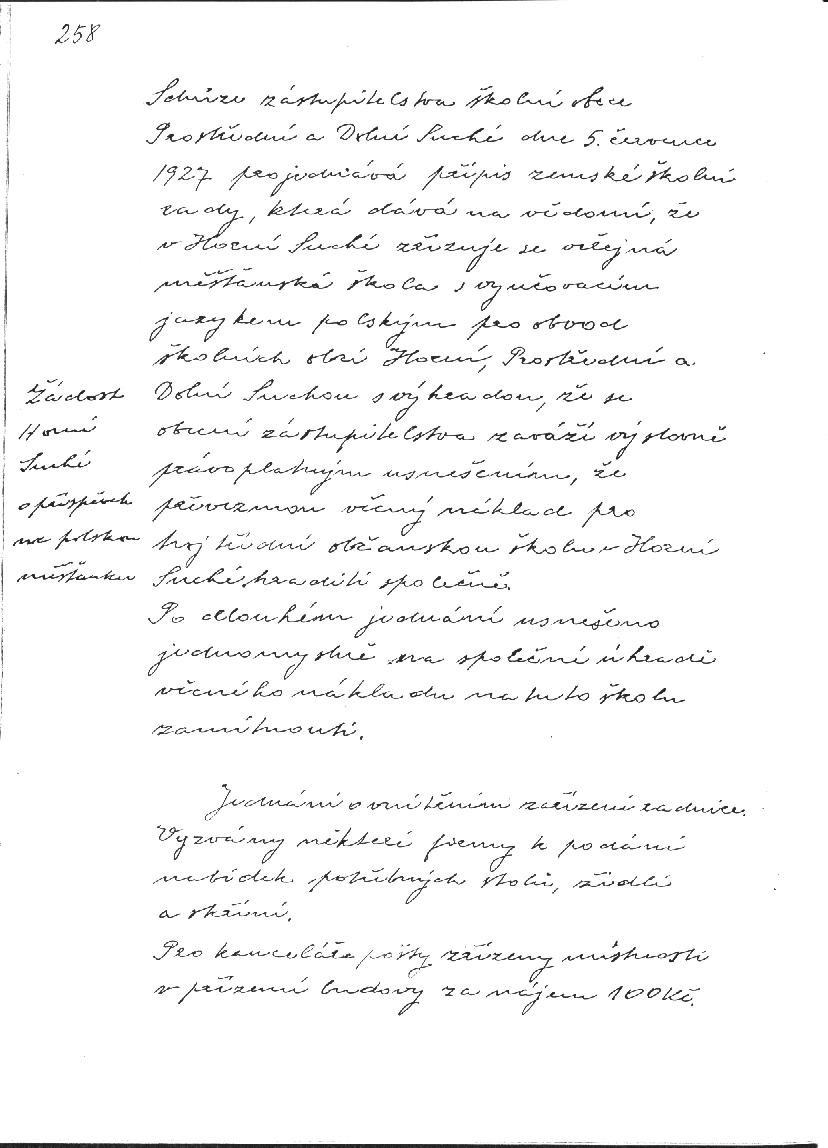 258
Schůze zástupitelstva školní obce
Prostřední a Dolní Suché dne 5. července
1927 projednává přípis zemské školní
rady, která dává na vědomí, že
v Horní Suché zřizuje se veřejná
měšťanská škola s vyučovacím
jazykem polským pro obvod
školních obcí Horní, Prostřední a
Dolní Suchou s výhradou, že se
obecní zástupitelstva zaváží výslovně
právoplatným usnešením, že
převezmou věcný náklad pro
trojtřídní občanskou školu v Horní
Suché hraditi společně.
Po dlouhém jednání usnešeno
jednomyslně na společní úhradě
věcného nákladu na tuto školu
zamítnouti.
Žádost
Horní
Suché
o příspěvek
na polskou
měšťanku
Jednání o vnitřním zařízení radnice.
Vyzvány některé firmy k podání
nabídek potřebných stolů, židlí
a skříní.
Pro kanceláře pošty zřízeny místnosti
v přízemí budovy za nájem 100 Kč.